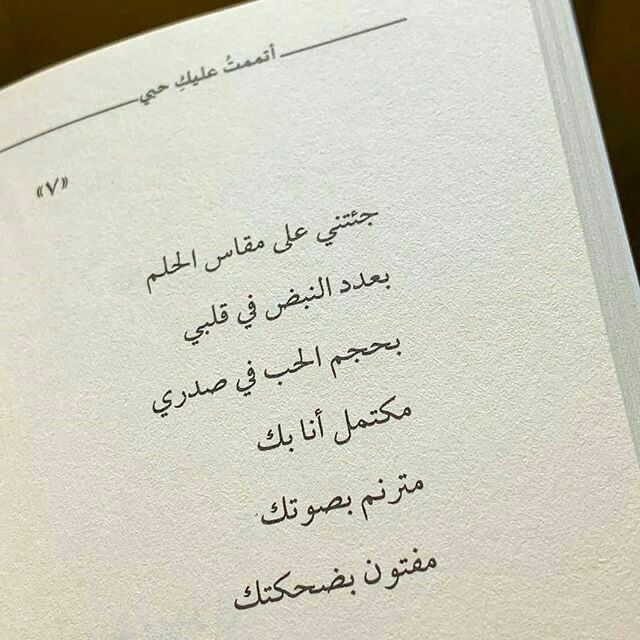 أتممتُ عليكِ حبي
«٧»
جئتني على مقاس الحلم
بعدد النبض في قلبي
بحجم الحب في صدري
مكتمل أنا بك
مترنم بصوتك
مفتون بضحكتك